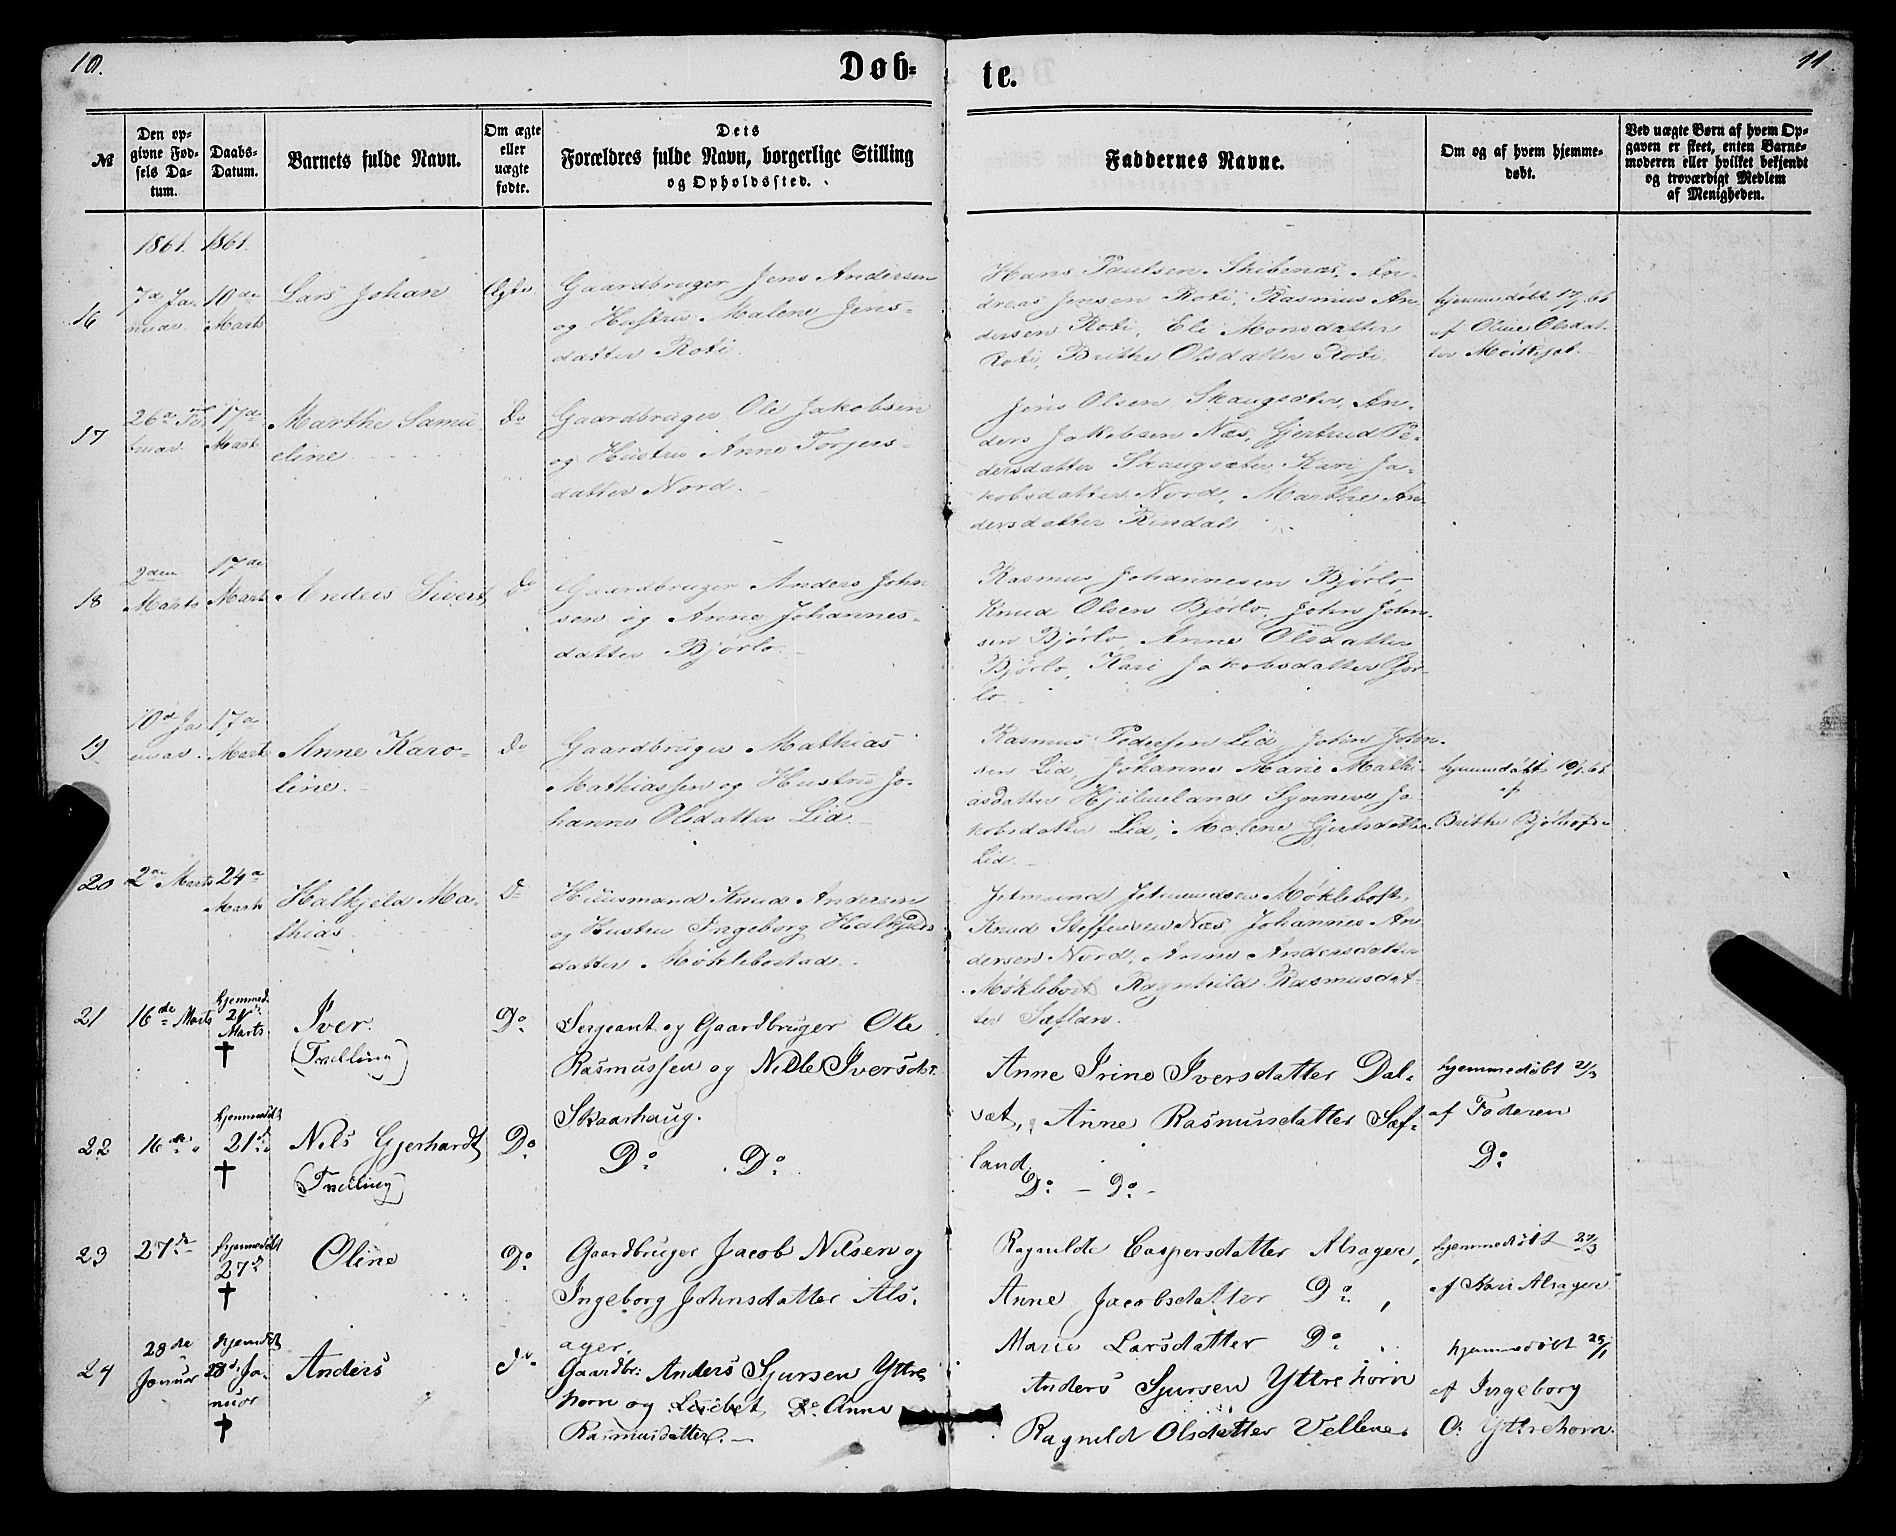 10.
Døb=
te.
11.
№
Den op=
givne Fød=
sels Da=
tum.
Daabs=
Datum.
Barnets fulde Navn.
Om ægte
eller
uægte
fødte.
Dets
Forældres fulde Navn, borgerlige Stilling
og Opholdssted.
Faddernes Navne.
Om og af hvem hjemme=
døbt.
Ved uægte Børn af hvem Op=
gaven er skeet, enten Barne=
moderen eller hvilket bekjendt
og troværdigt Medlem
af Menigheden.
1861. 1861.
16
7d Ja-
nuar
10de
Marts
Lars Johan
Ægte
Gaardbruger Jens Andersen
og Hustru Malene Jens-
datter Roti.
Hans Paulsen Skibenæs, An-
dreas Jensen Roti, Rasmus An-
dersen Roti, Eli Monsdatter
Roti, Brithe Olsdatter Roti.
hjemmedøbt
af Oline Olsdat-
ter
17
17de
Marts
Marthe Samu
eline
Do
Gaardbruger Ole Jakobsen
og Hustru Anne Torgers-
datter Nord.
Jens Olsen Skaugsæter, An-
ders Jakobsen Næs, Gjertrud Pe-
dersdatter Skaugsæter, Kari Ja-
kobsdatter Nord, Marthe An
dersdatter Rindal.
18
2den
Marts
17de
Marts
Anders Sivert,
Do
Gaardbruger Anders John
sen og Anne Johannes-
datter Bjørlo.
Rasmus Johannesen Bjørlo,
Knud Olsen Bjørlo, John John-
sen Bjørlo, Anne Olsdatter
Bjørlo, Kari Jakobsdatter Bjør-
lo
19
10d Ja
nuar.
17d
Marts
Anne Karo-
line.
Do
Gaardbruger Mathias
Mathiassen og Hustru Jo-
hanne Olsdatter Lid.
Rasmus Pedersen Lid, John John-
sen Lid, Johanne Marie Mathi-
asdatter Hjelmeland, Synneve Ja-
kobsdatter Lid, Malene Gjertsdatter
Lid.
hjemmedøbt
af
Brithe
20
2de Marts
24de
Marts
Halkjeld Ma-
thias
Do
Huusmand Knud Andersen
og Hustru Ingeborg Halkjelds
datter Møklebostad.
Jetmund Jetmundsen Møklebost,
Knud Steffensen Næs, Johannes An
dersen Nord, Anne Andersdatter
Møklebost, Ragnhild Rasmusdat-
ter Sæfland.
21
16de Marts
hjemmed.
21d
Marts.
†
Iver.
(Tvelling)
Do
Sergeant og Gaardbruger Ole
Rasmussen og Nille Iversdtr
Skaarhaug.
Anne Irine Iversdatter Dal-
sæt, Anne Rasmusdatter Sæf-
land.
hjemmedøbt 21/3
af Faderen
22
16de "
hjemmedøbt
21d
†
Nils Gjerhardt
(Tvelling)
Do
Do Do
Do - Do -
Do
23
27de
hjemmedøbt
27d
†
Oline
Do
Gaardbruger Jacob Nilsen og
Ingeborg Johnsdatter Als-
ager.
Ragnilde Caspersdatter Alsager,
Anne Jacobsdatter Do,
Marie Larsdatter Do
hjemmedøbt 27/3
af Kari Alsager
24
28de
Januar
hjemdøbt
28d Ja-
nuar
†
Anders
do
Gaardbr: Anders Sjursen Yttre
horn og Lisebet Do Anne
Rasmusdatter.
Anders Sjursen Yttrehorn
Ragnild Olsdatter Vellene.
hjemmedøbt 28/1
af Ingeborg
O. Yttrehorn.